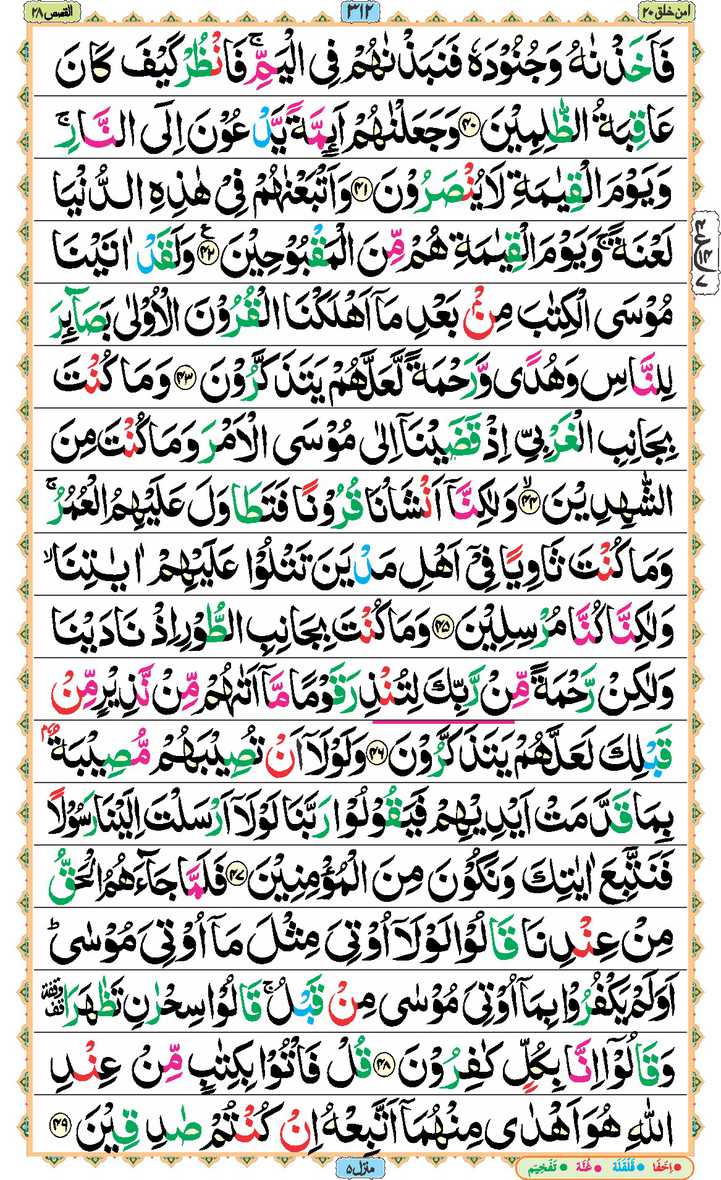 امن خلق ۲۰ ۳۱۲ القصص ۲۸
فَاَخَذْنٰهُ وَجُنُوْدَهٗ فَنَبَذْنٰهُمْ فِى الْيَمِّ ۚ فَانْظُرْ كَيْفَ كَانَ
عَاقِبَةُ الظّٰلِمِيْنَ ۴۰ وَجَعَلْنٰهُمْ اَئِمَّةً يَّدْعُوْنَ اِلَى النَّارِ ۚ
وَيَوْمَ الْقِيٰمَةِ لَا يُنْصَرُوْنَ ۴۱ وَاَتْبَعْنٰهُمْ فِىْ هٰذِهِ الدُّنْيَا
لَعْنَةً ۚ وَيَوْمَ الْقِيٰمَةِ هُمْ مِّنَ الْمَقْبُوْحِيْنَ ۴۲ وَلَقَدْ اٰتَيْنَا
مُوْسَى الْكِتٰبَ مِنْۢ بَعْدِ مَاۤ اَهْلَكْنَا الْقُرُوْنَ الْاُوْلٰى بَصَآئِرَ
لِلنَّاسِ وَهُدًى وَّرَحْمَةً لَّعَلَّهُمْ يَتَذَكَّرُوْنَ ۴۳ وَمَا كُنْتَ
بِجَانِبِ الْغَرْبِىِّ اِذْ قَضَيْنَاۤ اِلٰى مُوْسَى الْاَمْرَ وَمَا كُنْتَ مِنَ
الشّٰهِدِيْنَ ۙ۴۴ وَلٰكِنَّاۤ اَنْشَاْنَا قُرُوْنًا فَتَطَاوَلَ عَلَيْهِمُ الْعُمُرُ ۚ
وَمَا كُنْتَ ثَاوِيًا فِىْۤ اَهْلِ مَدْيَنَ تَتْلُوْا عَلَيْهِمْ اٰيٰتِنَا ۙ
وَلٰكِنَّا كُنَّا مُرْسِلِيْنَ ۴۵ وَمَا كُنْتَ بِجَانِبِ الطُّوْرِ اِذْ نَادَيْنَا
وَلٰكِنْ رَّحْمَةً مِّنْ رَّبِّكَ لِتُنْذِرَ قَوْمًا مَّاۤ اَتٰٮهُمْ مِّنْ نَّذِيْرٍ مِّنْ
قَبْلِكَ لَعَلَّهُمْ يَتَذَكَّرُوْنَ ۴۶ وَلَوْلَاۤ اَنْ تُصِيْبَهُمْ مُّصِيْبَةٌۢ
بِمَا قَدَّمَتْ اَيْدِيْهِمْ فَيَقُوْلُوْا رَبَّنَا لَوْلَاۤ اَرْسَلْتَ اِلَيْنَا رَسُوْلًا
فَنَتَّبِعَ اٰيٰتِكَ وَنَكُوْنَ مِنَ الْمُؤْمِنِيْنَ ۴۷ فَلَمَّا جَآءَهُمُ الْحَقُّ
مِنْ عِنْدِنَا قَالُوْا لَوْلَاۤ اُوْتِىَ مِثْلَ مَاۤ اُوْتِىَ مُوْسٰى ؕ
اَوَلَمْ يَكْفُرُوْا بِمَاۤ اُوْتِىَ مُوْسٰى مِنْ قَبْلُ ۚ قَالُوْا سِحْرٰنِ تَظٰهَرَا وقفة قف
وَقَالُوْۤا اِنَّا بِكُلٍّ كٰفِرُوْنَ ۴۸ قُلْ فَاْتُوْا بِكِتٰبٍ مِّنْ عِنْدِ
اللّٰهِ هُوَ اَهْدٰى مِنْهُمَاۤ اَتَّبِعْهُ اِنْ كُنْتُمْ صٰدِقِيْنَ ۴۹
منزل ۵
اِخْفَا قَلْقَلَة غُنَّة تَفْخِيْم